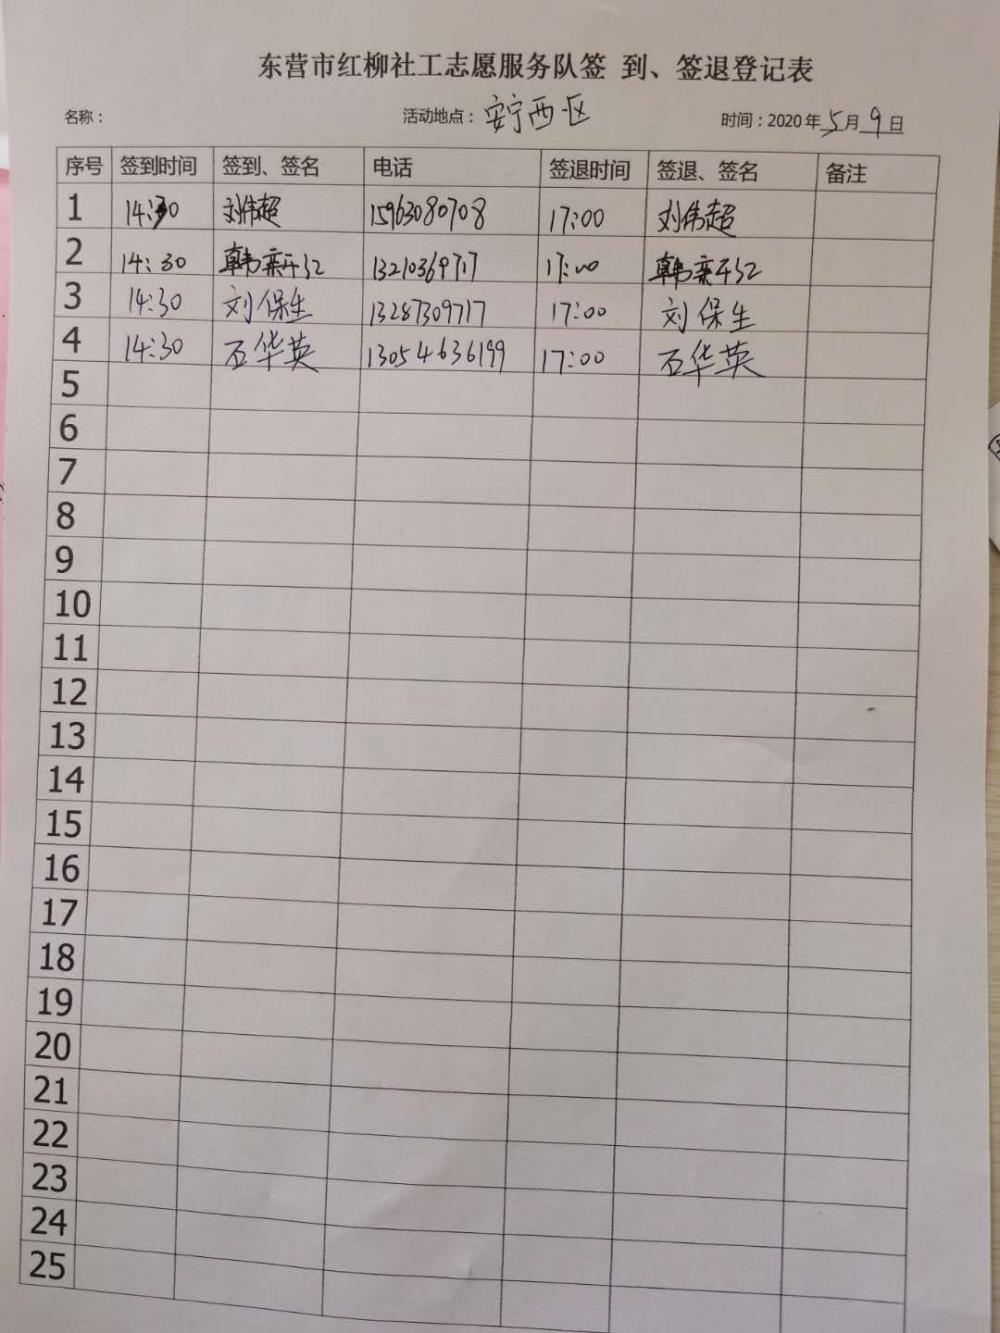 东营市红柳社工志愿服务队签 到、签退登记表
名称： 活动地点：安宁西区 时间：2020年5月9日
序号 签到时间 签到、签名 电话 签退时间 签退、签名 备注
1 14:30 刘伟超 15963080708 17:00 刘伟超
2 14:30 13210369717 17:00
3 14:30 刘保生 13287309717 17:00 刘保生
4 14:30 石华英 13054636199 17:00 石华英
5
6
7
8
9
10
11
12
13
14
15
16
17
18
19
20
21
22
23
24
25